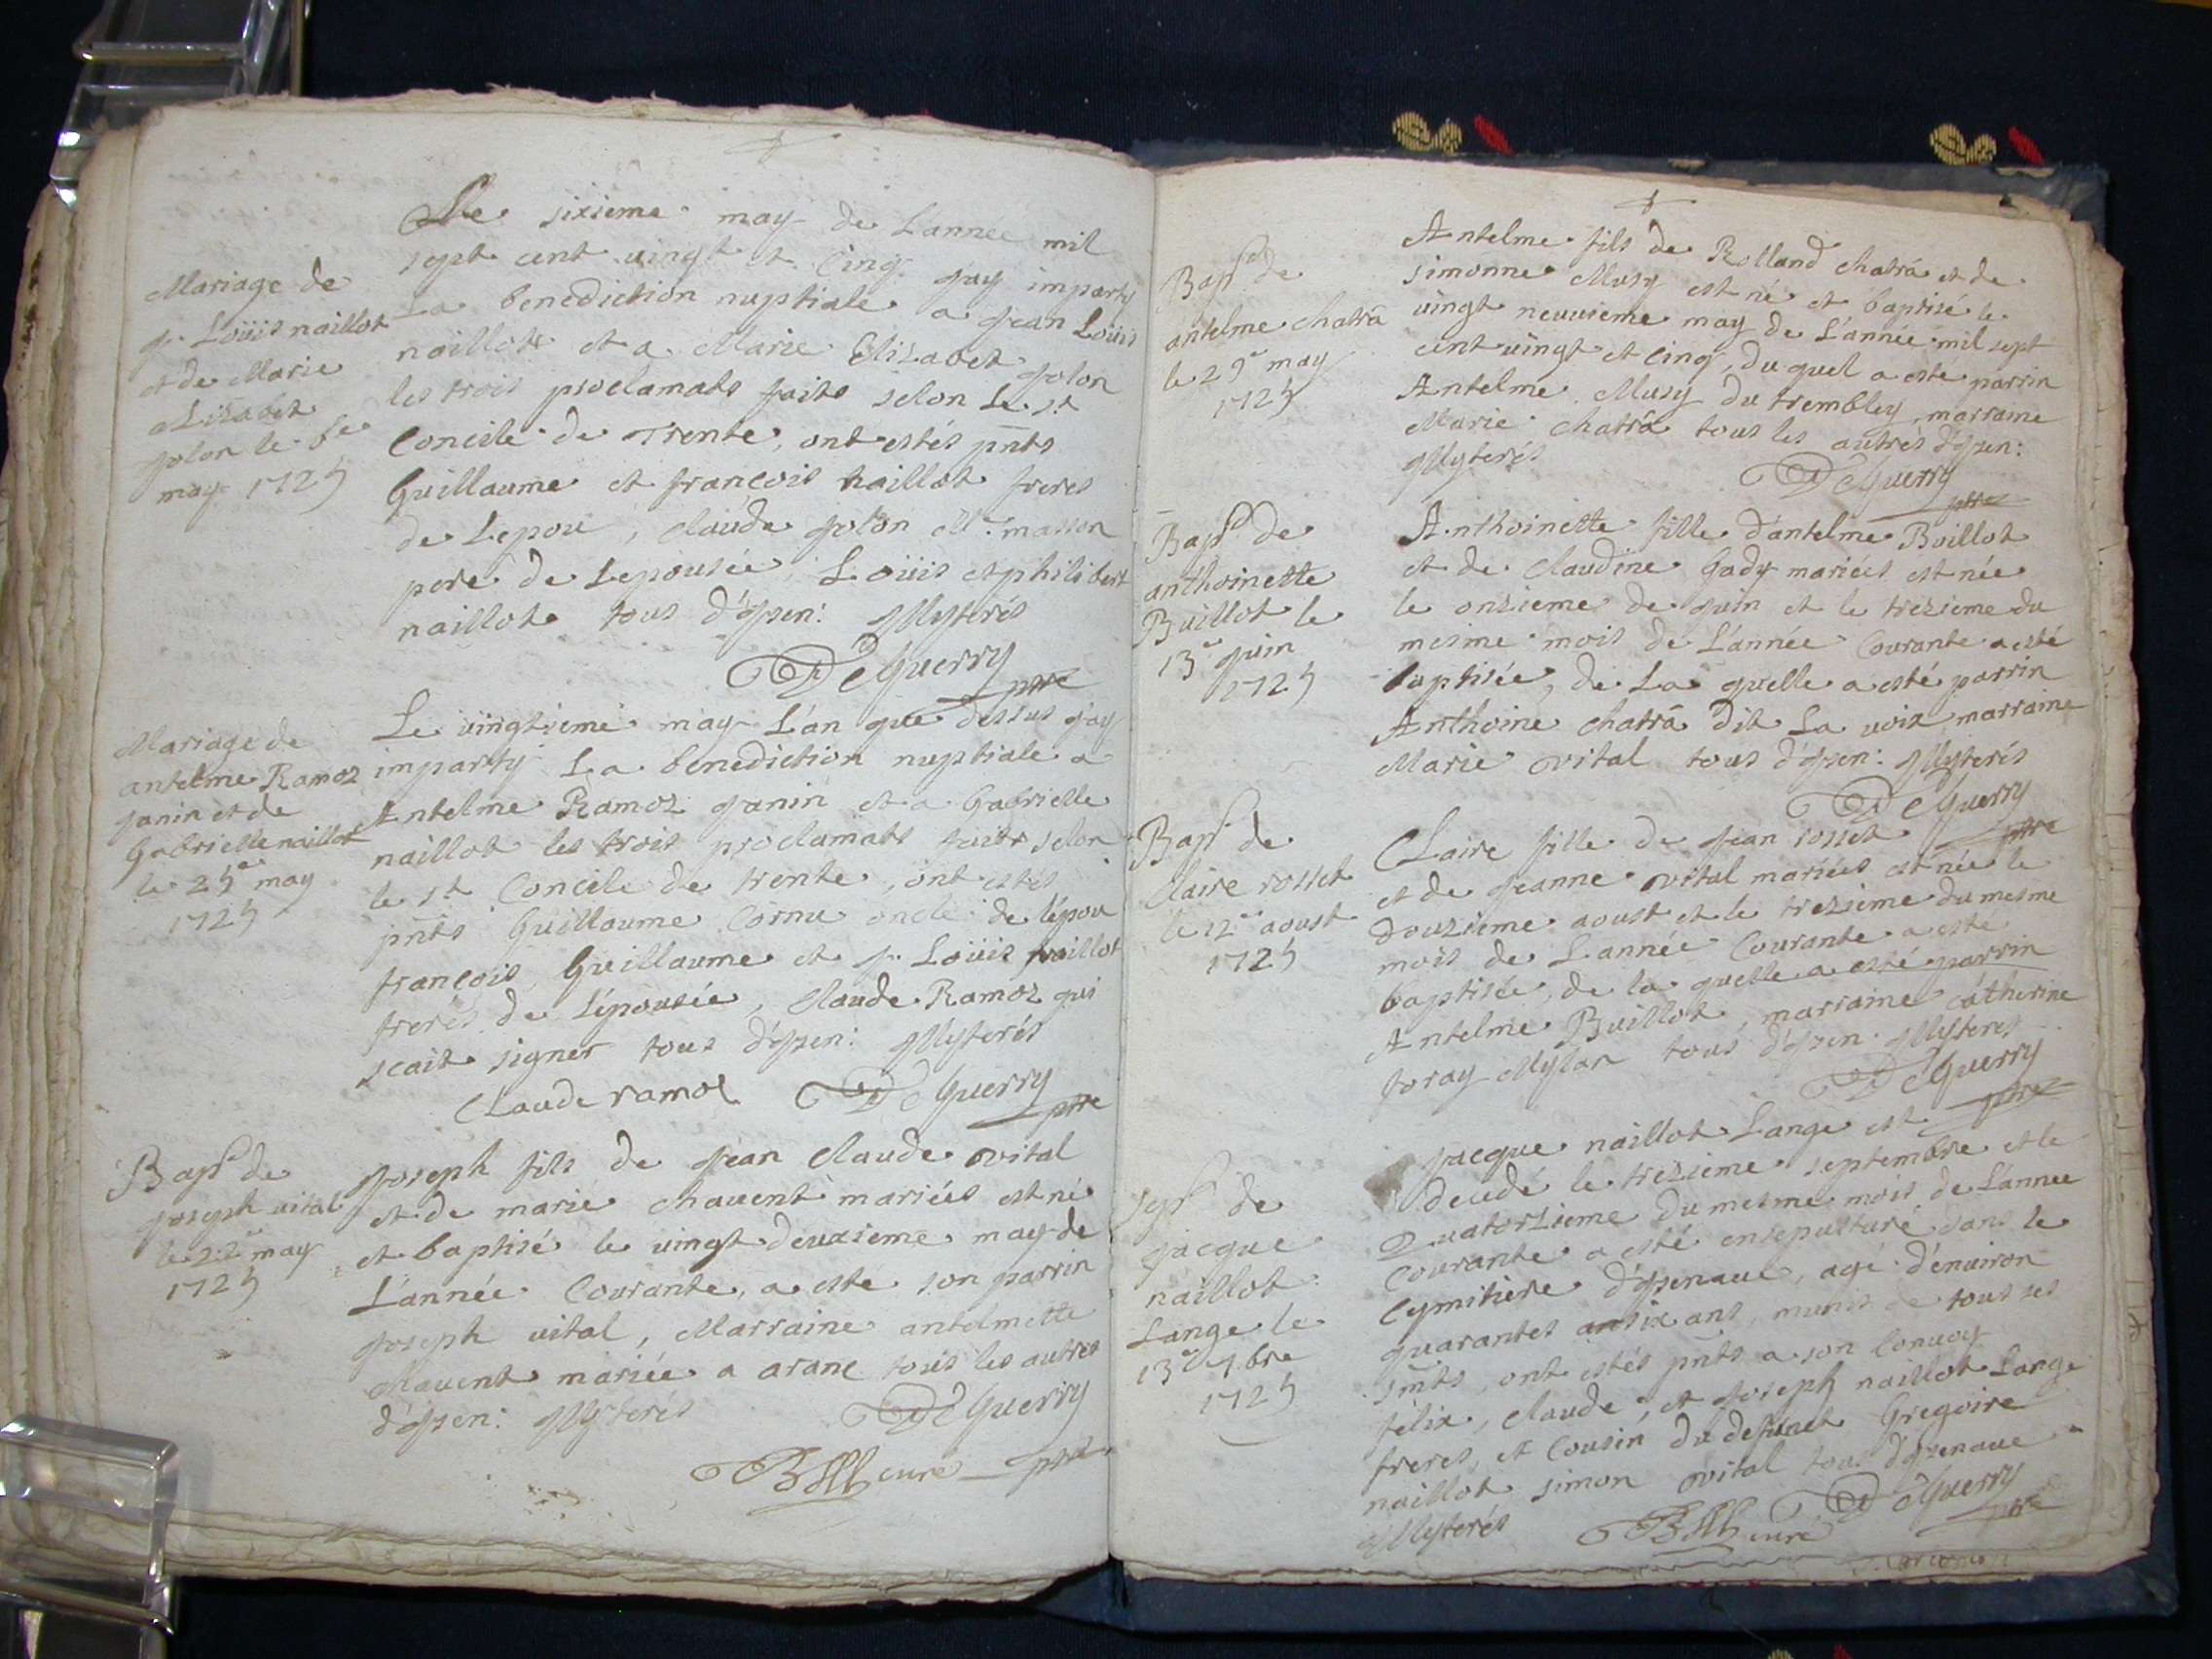 Mariage de
j. Loüis naillot
et de Marie
Elizabet
jolon le 6e
may 1725
Le sixieme may de L'annee mil
sept cent vingt et cinq j'ay imparty
La benediction nuptiale a jean Loüis
naillot et a Marie Elizabet jolon
les trois proclamats faits selon Le st
Concile de Trente, ont estés pnts
Guillaume et françois naillot freres
de Lepou, Claude jolon Mr masson
pere de Lepousée, Loüis et philibert
naillot tous d'jzen: jllyterés
DeGuerry
ptre
Mariage de
antelme Ramoz
janin et de
Gabrielle naillot
le 25e may
1725
Le vingtieme may L'an que dessus j'ay
imparty La benediction nuptiale a
Antelme Ramoz janin et a Gabrielle
naillot les trois proclamats faits selon
le st Concile de trente, ont estés
pnts Guillaume Cornu oncle de l'épou
françois, Guillaume et j. Loüis naillot
freres de L'épousée, Claude Ramoz qui
scait signer tous d'jzen: jllyterés
Claude ramoz DeGuerry
ptre
Bapt de
joseph vital
le 22e may
1725
joseph fils de jean Claude vital
et de marie chavent mariés est né
et baptisé le vingt deuxieme may de
L'année Courante, a esté son parrin
joseph vital, Marraine antelmette
chavent mariée a arane tous les autres
d'jzen: jllyterés DeGuerry
curé ptre
Bapt de
antelme chatrâ
le 29e may
1725
Antelme fils de Rolland chatrâ et de
simonne Musy est né et baptisé le
vingt neuvieme may de L'année mil sept
cent vingt et cinq, du quel a esté parrin
Antelme Musy du trembley, marraine
Marie chatrâ tous les autres d'jzen:
jllyterés DeGuerry
ptre
Bapt de
anthoinette
Buillot le
13e juin
1725
Anthoinette fille d'antelme Buillot
et de Claudine Gady mariés est née
le onzieme de juin et le trezieme du
mesme mois de L'année Courante a esté
baptisée, de La quelle a esté parrin
Anthoine chatrâ dit La voix, marraine
Marie vital tous d'jzen: jllyterés
DeGuerry
ptre
Bapt de
Claire rosset
le 12e aoust
1725
Claire fille de jean rosset
et de jeanne vital mariés est née le
douzieme aoust et le trezieme du mesme
mois de L'année Courante a esté
baptisée, de la quelle a esté parrin
Antelme Buillot, marraine catherine
foray Mylan tous d'jzen. jllyteres
DeGuerry
ptre
sept de
jacque
naillot
Lange le
13e 7.bre
1725
jacque naillot Lange est
decedé le trezieme septembre et le
Quatorzieme du mesme mois de L'annee
Courante a esté ensepulturé dans le
Cymitiere d'jzenave, agé d'environ
quarantes six ans, munis de tous ses
smts, ont estés pnts a son Convoy
félix, Claude, et joseph naillot Lange
freres, et Cousin du defunct Gregoire
naillot simon vital tous d'jzenave
jllyterés DeGuerry
curé ptre